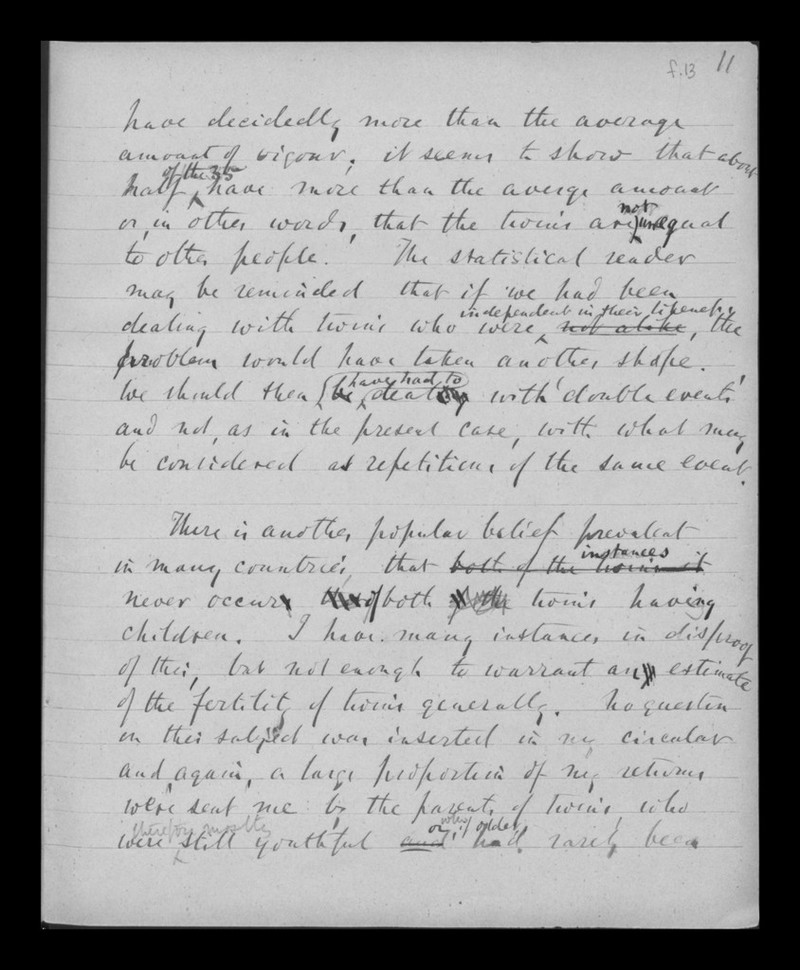 f.13 11
have decidedly more than the average
amount of vigour; it seems to show that about
of the 35
half have more than the averge amount
or, in other words, that the twins are not unequal
to other people. The statistical reader
may be reminded that if we had been
independent in their likeness
dealing with twins who were not alike, the
problem would have taken another shape.
have had to
We should then be dealing with 'double events'
and not, as in the present case, with what may
be considered as repetitions of the same event.
There is another popular belief prevalent
instances
in many countries, that both of the twins it
never occur of both twins having
children. I have many instances in disproof
of this, but not enough to warrant any estimate
of the fertility of twins generally. No question
on this subject was inserted in my circular
and, again, a large proportion of my returns
were sent me by the parents of twins, who
therefore mostly or, if older,
were still youthful and had rarely been